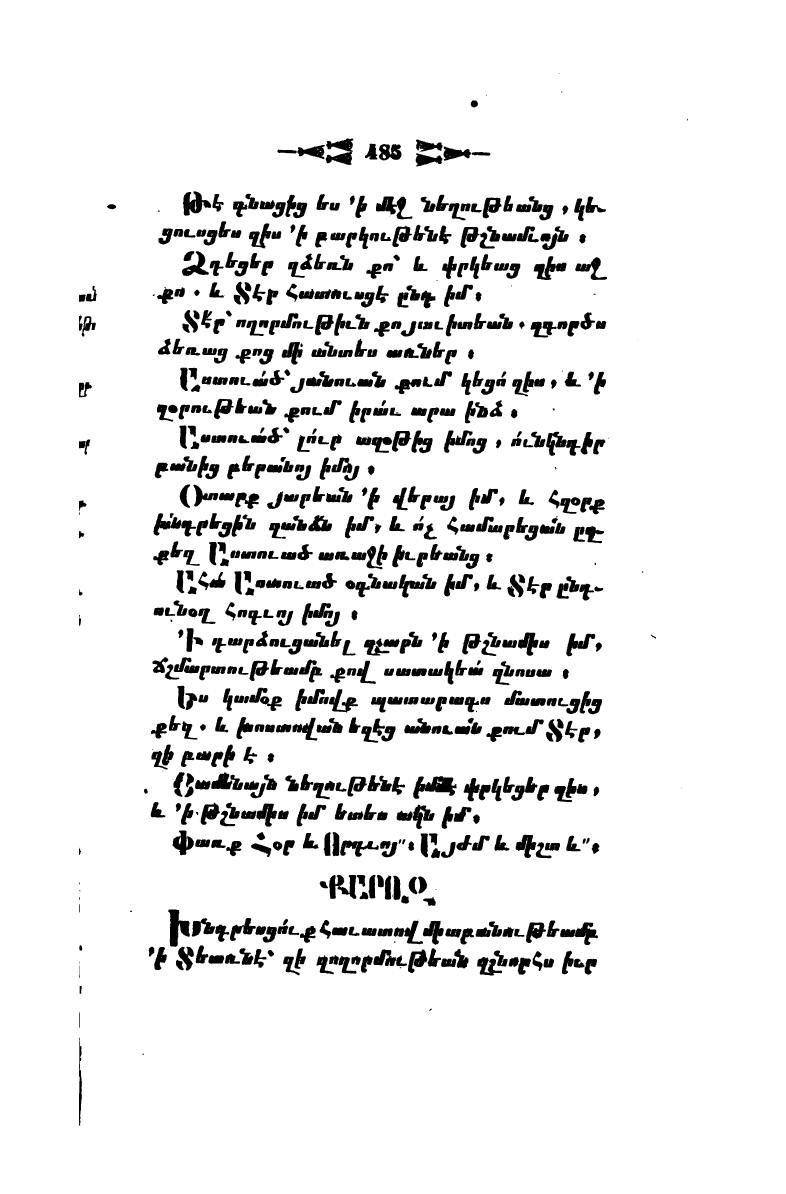 485
Թէ գնացից ես ՚ի մէջ նեղութեանց, կե֊
ցուսցես զիս ՚ի բարկութենէ թշնամւոյն ։
Ձգեցեր զձեռն քո՝ և փրկեաց զիս աջ
քո . և Տէր հատուսցէ ընդ իմ ։
Տէր՝ ողորմութիւն քո յաւիտեան . զգործս
ձեռաց քոց մի անտես առներ ։
Աստուած՝ յանուան քում կեցո՛ զիս, և ՚ի
զօրութեան քում իրաւ արա ինձ ։
Աստուած՝ լուր աղօթից իմոց, ունկնդիր
բանից բերանոյ իմոյ ։
Օտարք յարեան ՚ի վերայ իմ, և հզօրք
խնդրեցին զանձն իմ, և ոչ համարեցան ըզ֊
քեզ Աստուած առաջի իւրեանց ։
Ահա Աստուած օգնական իմ, և Տէր ընդ֊
ունօղ հոգւոյ իմոյ ։
՚Ի դարձուցանել զչարն ՚ի թշնամիս իմ,
ճշմարտութեամբ քով սատակեա՛ զնոսա ։
Ես կամօք իմովք պատարագս մատուցից
քեզ . և խոստովան եղէց անուան քում Տէր,
զի բարի է ։
Յամենայն նեղութենէ իմմէ փրկեցեր զիս,
և ՚ի թշնամիս իմ ետես ակն իմ ։
Փառք Հօր և Որդւոյ՛՛ ։ Այժմ և միշտ և՛՛ ։
ՔԱՐՈԶ
Խնդրեսցուք հաւատով միաբանութեամբ
՚ի Տեառնէ՝ զի զողորմութեան զշնորհս իւր